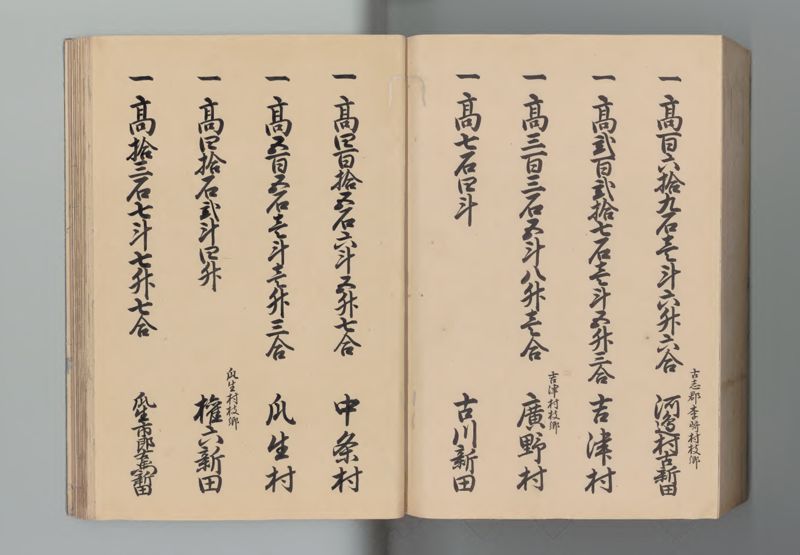 一 高百六拾九石壱斗六升六合
古志郡李崎村枝郷
河邉村古新田
一 高弐百弐拾七石壱斗五升三合 吉津村
一 高三百三石五斗八升壱合
吉津村枝郷
廣野村
一 高七石四斗 古川新田
一 高四百拾五石六斗五升七合 中条村
一 高五百五石壱斗壱升三合 瓜生村
一 高四拾石弐斗四升
瓜生村枝郷
権六新田
一 高拾三石七斗七升七合 瓜生市郎右衛門新田